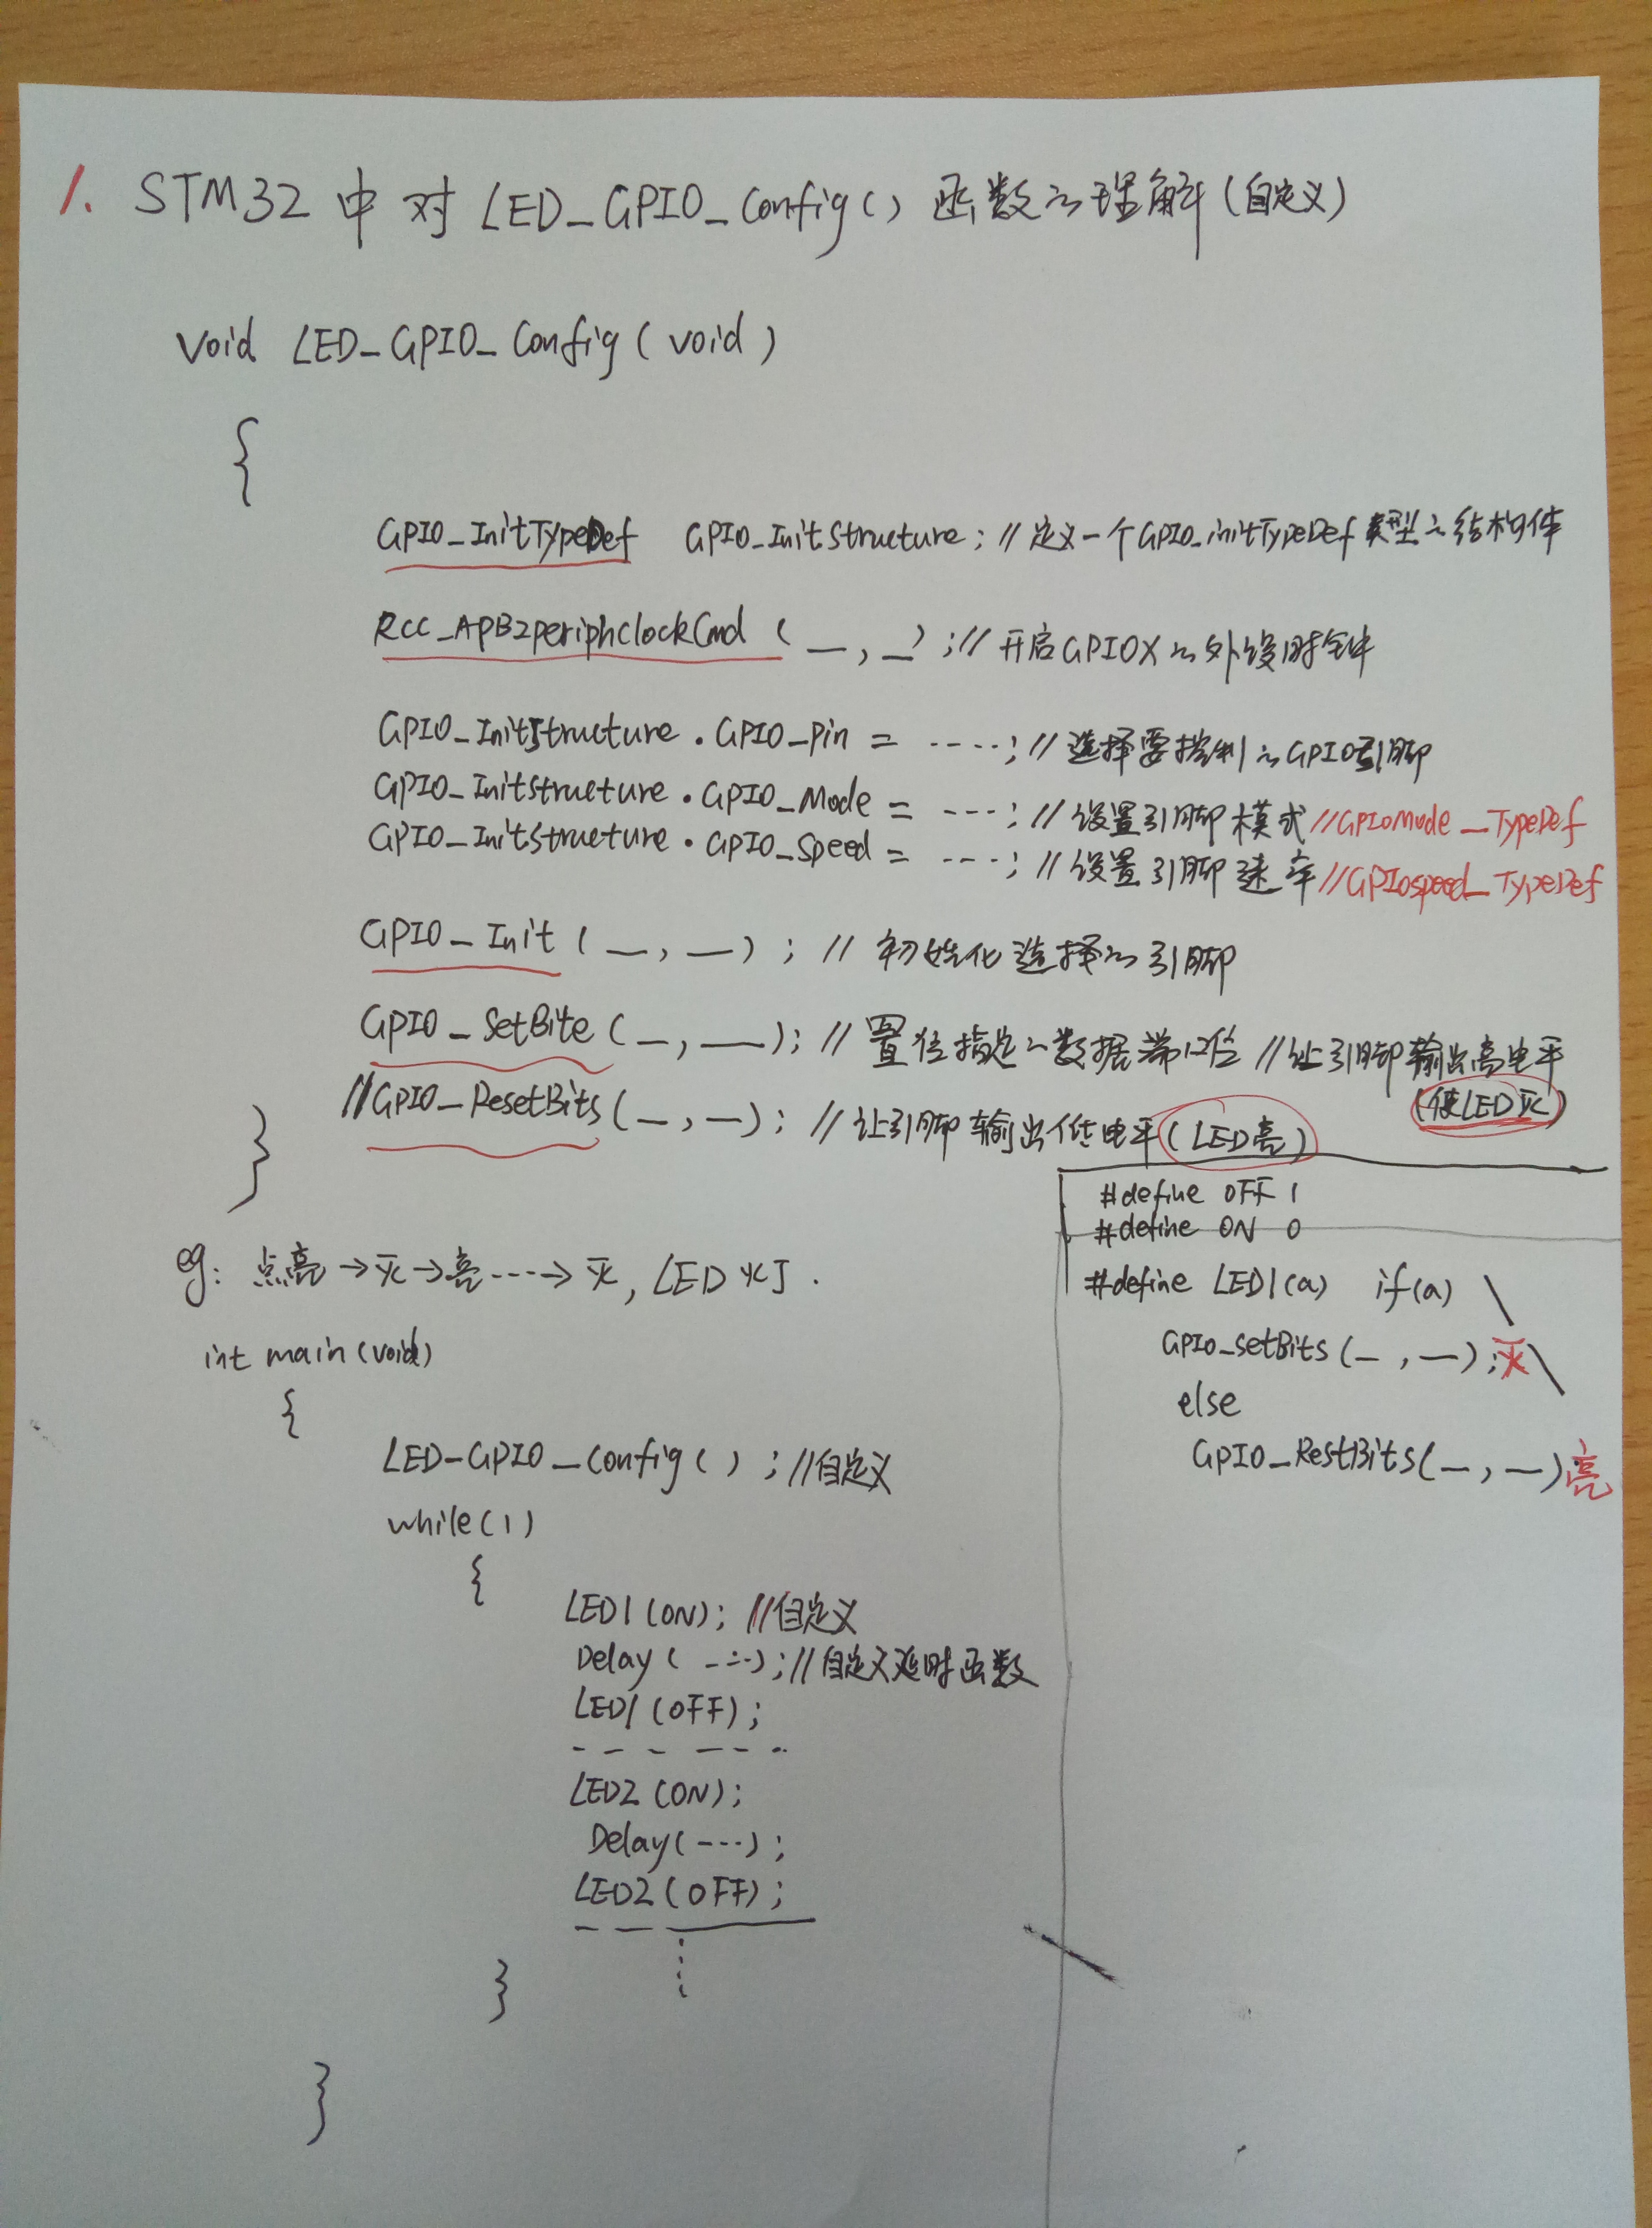 1. STM32 中 对 LED_GPIO_Config() 函数之理解(自定义)
void LED_GPIO_Config(void)
{
GPIO_InitTypeDef GPIO_InitStructure; // 定义一个GPIO_initTypeDef 类型之结构体
RCC_APB2periphclockCmd(__,__);// 开启GPIOX之外设时钟
GPIO_InitStructure.GPIO_Pin = ----;// 选择要控制之GPIO引脚
GPIO_Initstructure.GPIO_Mode = ---;// 设置引脚模式//GPIOMode_TypeDef
GPIO_InitStructure.GPIO_Speed = ---;// 设置引脚速率//GPIOspeed_TypeDef
GPIO_Init(__,__); // 初始化选择之引脚
GPIO_SetBite(__,__);// 置位指定之数据端口位 //让引脚输出高电平
(使LED灭)
//GPIO_ResetBits(__,__); // 让引脚输出低电平(LED亮)
}
eg: 点亮→灭→亮----→灭, LED灯.
int main(void)
{
LED-GPIO_Config();//自定义
while(1)
{
LED1(ON); //自定义
Delay(---);//自定义延时函数
LED1(OFF);
------
LED2(ON);
Delay(---);
LED2(OFF);
}
}
#define OFF 1
#define ON 0
#define LED1(a) if(a) \
GPIO_SetBits(__,__);灭\
else
GPIO_RestBits(__,__)亮